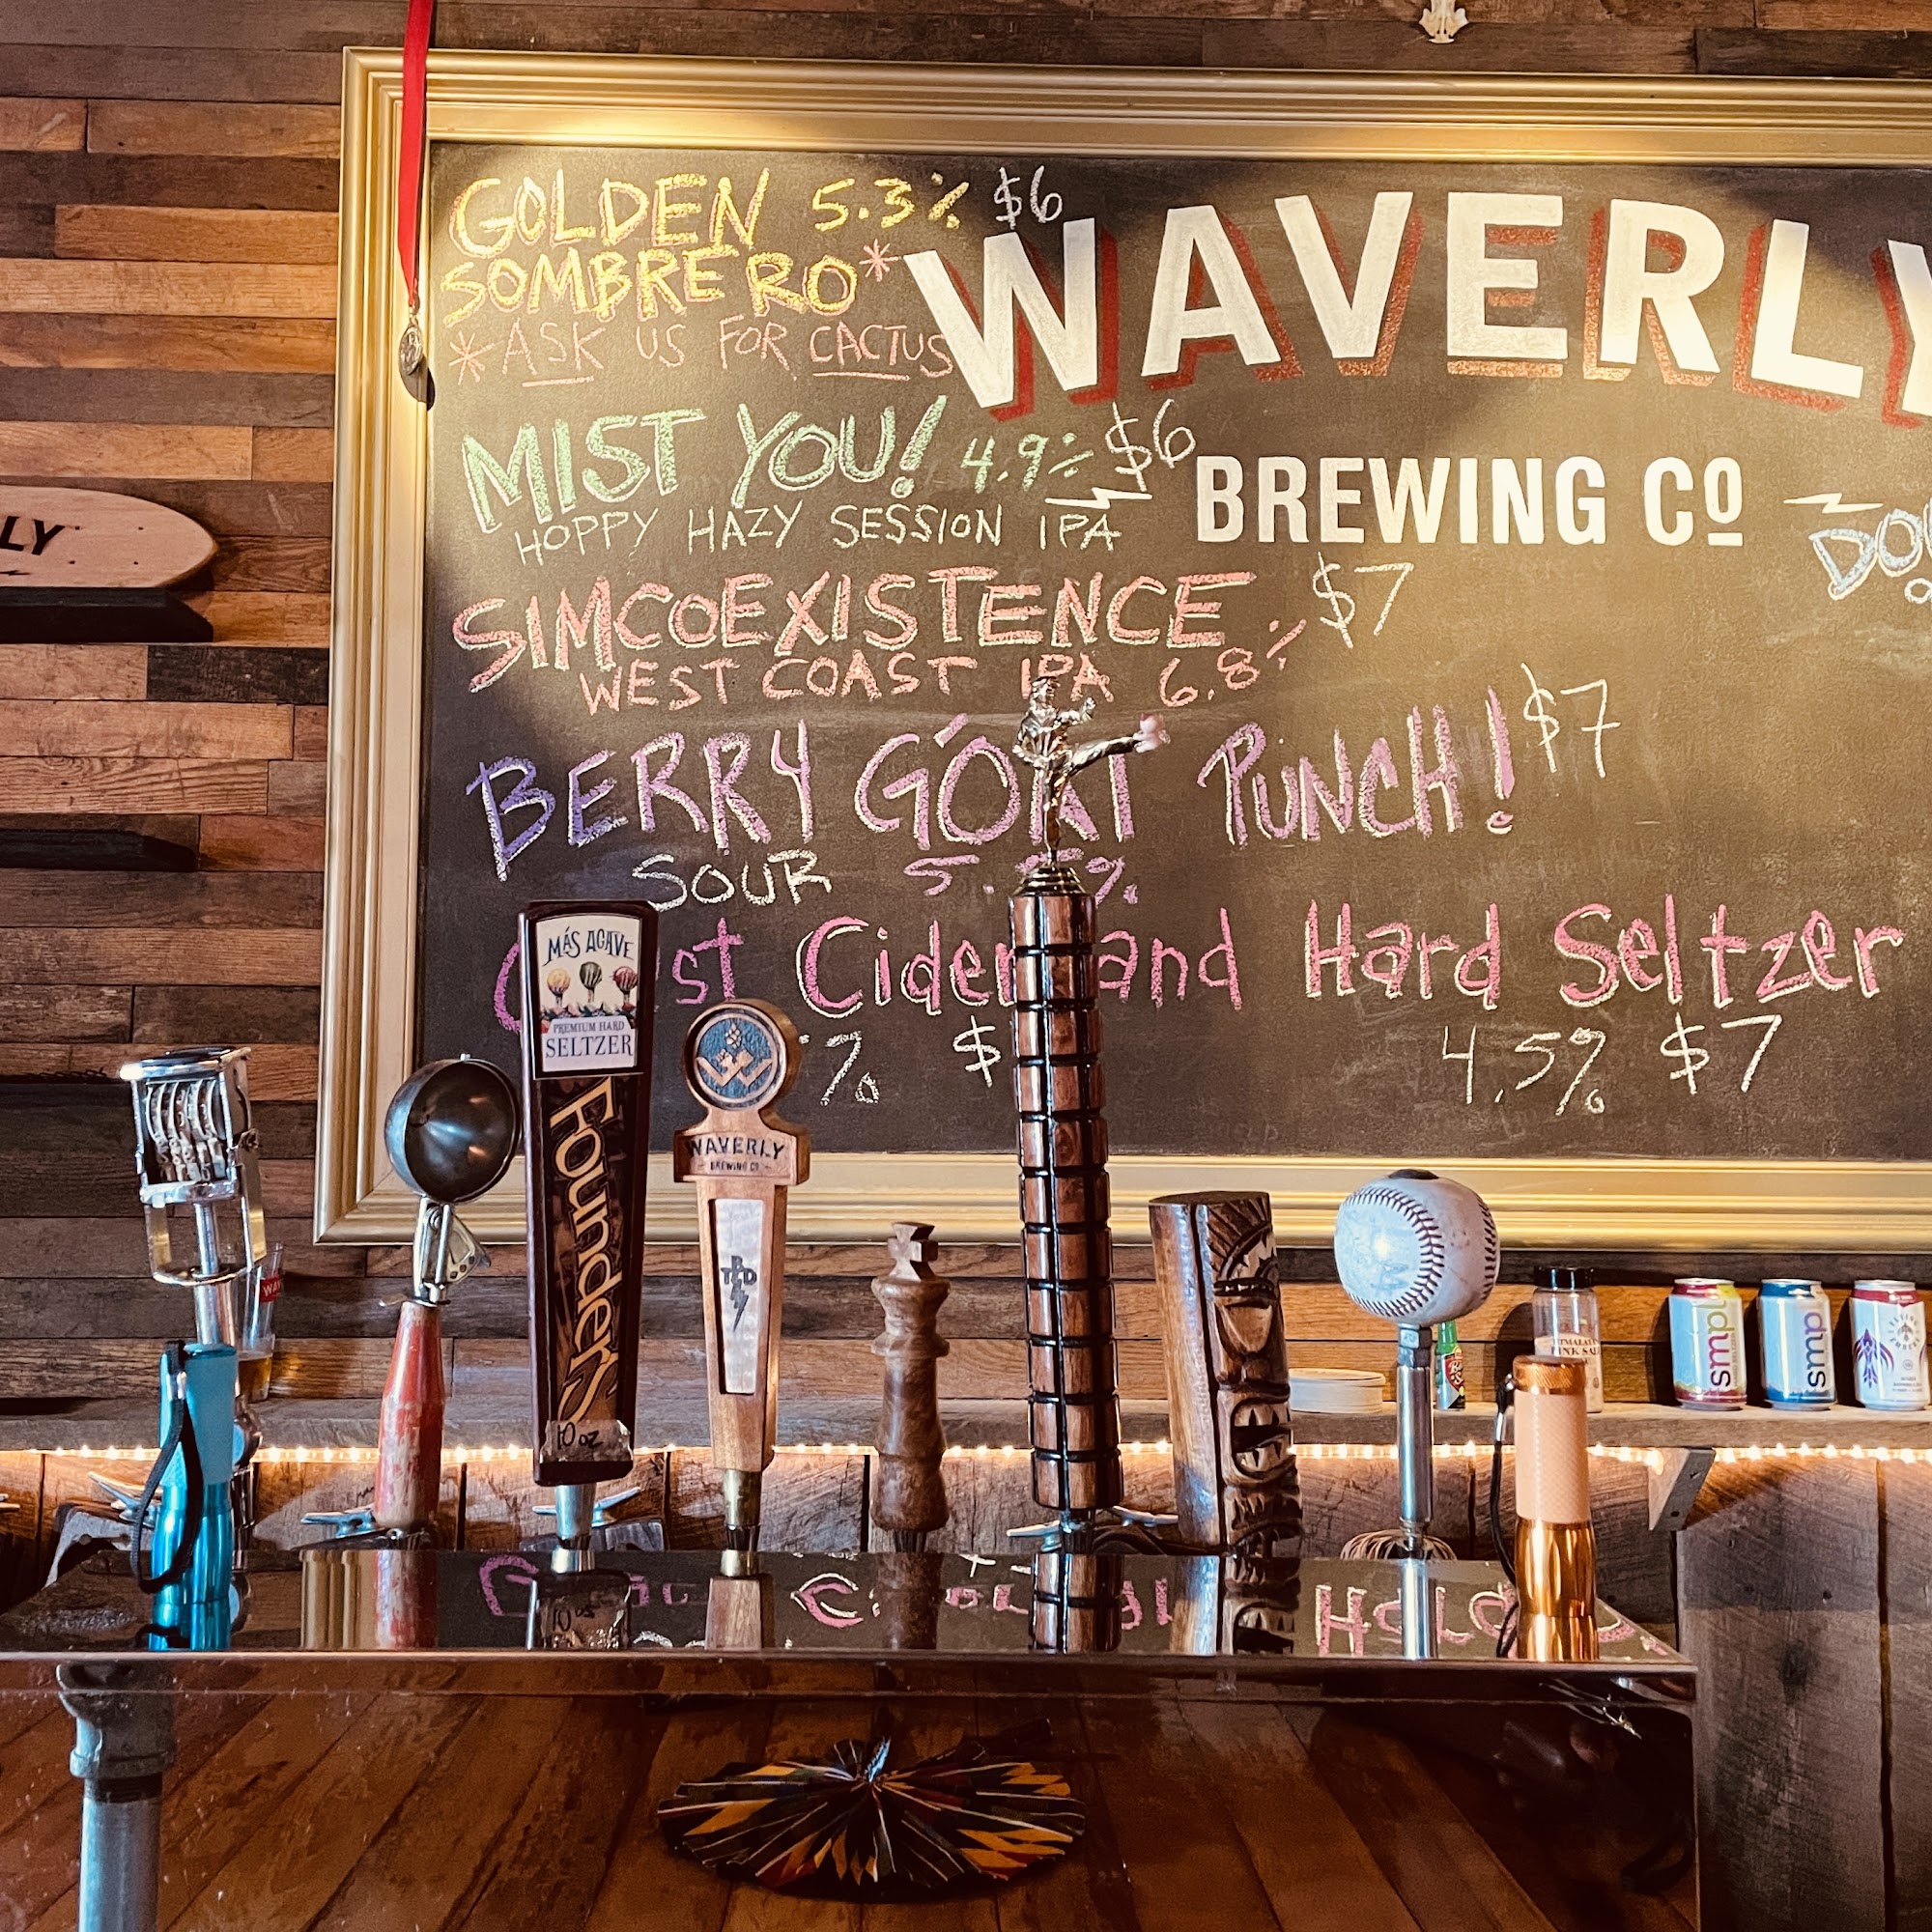 GOLDEN 5.3% $6
SOMBRERO*
*ASK US FOR CACTUS
WAVERLY
BREWING Cº
MIST YOU! 4.9% $6
HOPPY HAZY SESSION IPA
SIMCOEXISTENCE $7
WEST COAST IPA 6.8%
BERRY GOAT PUNCH! $7
SOUR 5. %
Cider and Hard Seltzer
% $
4.5% $7
LY
MÁS AGAVE
PREMIUM HARD
SELTZER
Founders
10 oz
WAVERLY
BREWING CO
TBD
PINK SALT
smpl
smpl